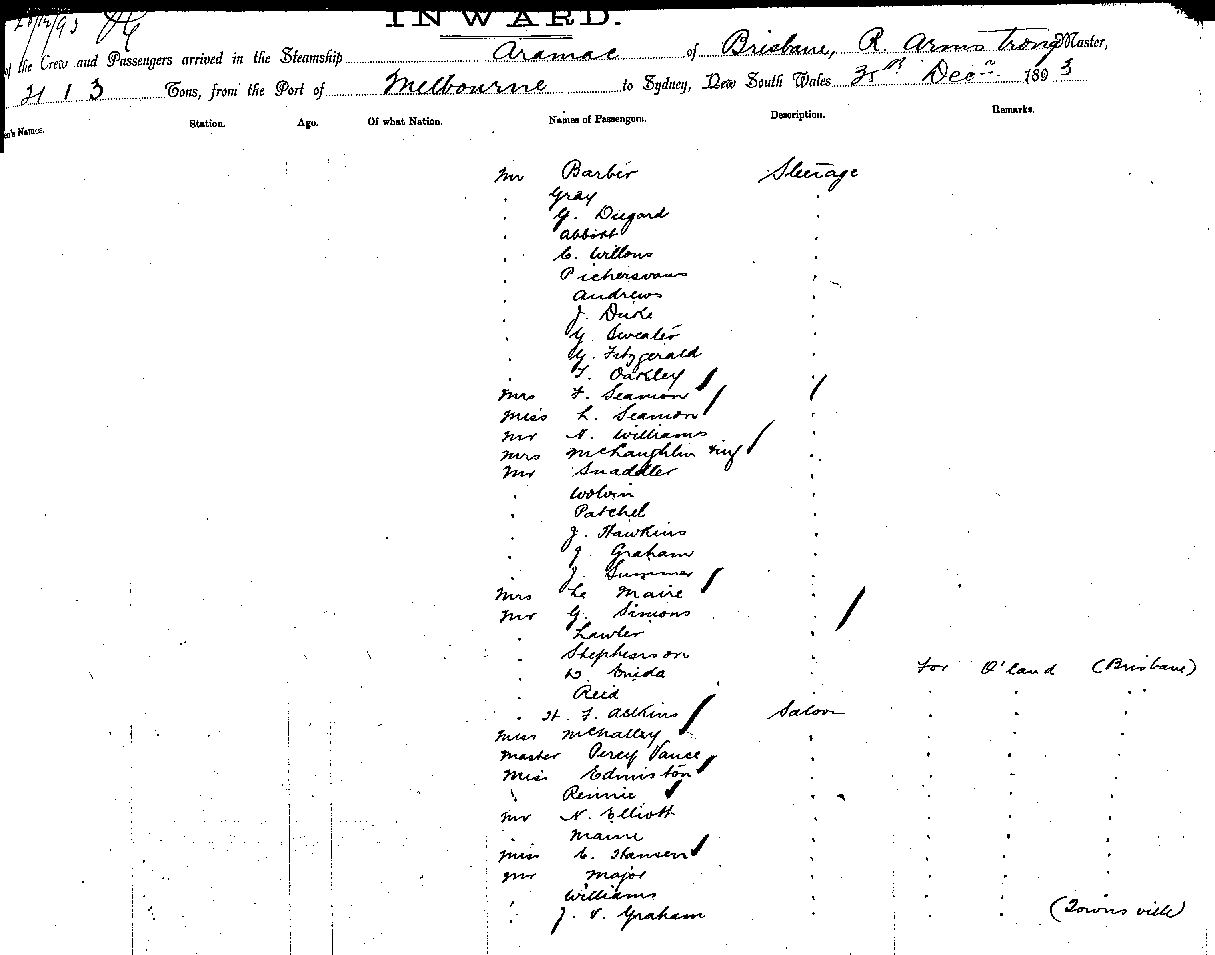 INWARD.
of the Crew and Passengers arrived in the Steamship Aramac of Brisbane, R. Armstrong Master,
2113 Tons, from the Port of Melbourne to Sydney, New South Wales Decr 1893
Names. Station. Age. Of what Nation. Names of Passengers. Description. Remarks.
Mr Barber Steerage
Gray
G. Diegard
Abbott
C. Willons
Andrews
J. Duke
G. Sweater
G. Fitzgerald
T. Oakley
Mrs F. Seamon
Miss L. Seamon
Mr N. Williams
Mrs McLaughlin & inf
Mr Snaddler
Wolvin
Patchel
J. Hawkins
J. Graham
J. Summer
Mrs Le Maire
Mr G. Simons
Lawler
Stephenson
D. For Q'land (Brisbane)
Reid
H. F. Adkins Saloon
Miss McNalley
Master Percy Vance
Miss Edmiston
Rennie
Mr N. Elliott
Marne
Miss C. Hansen
Mr Major
Williams
J. V. Graham (Townsville)